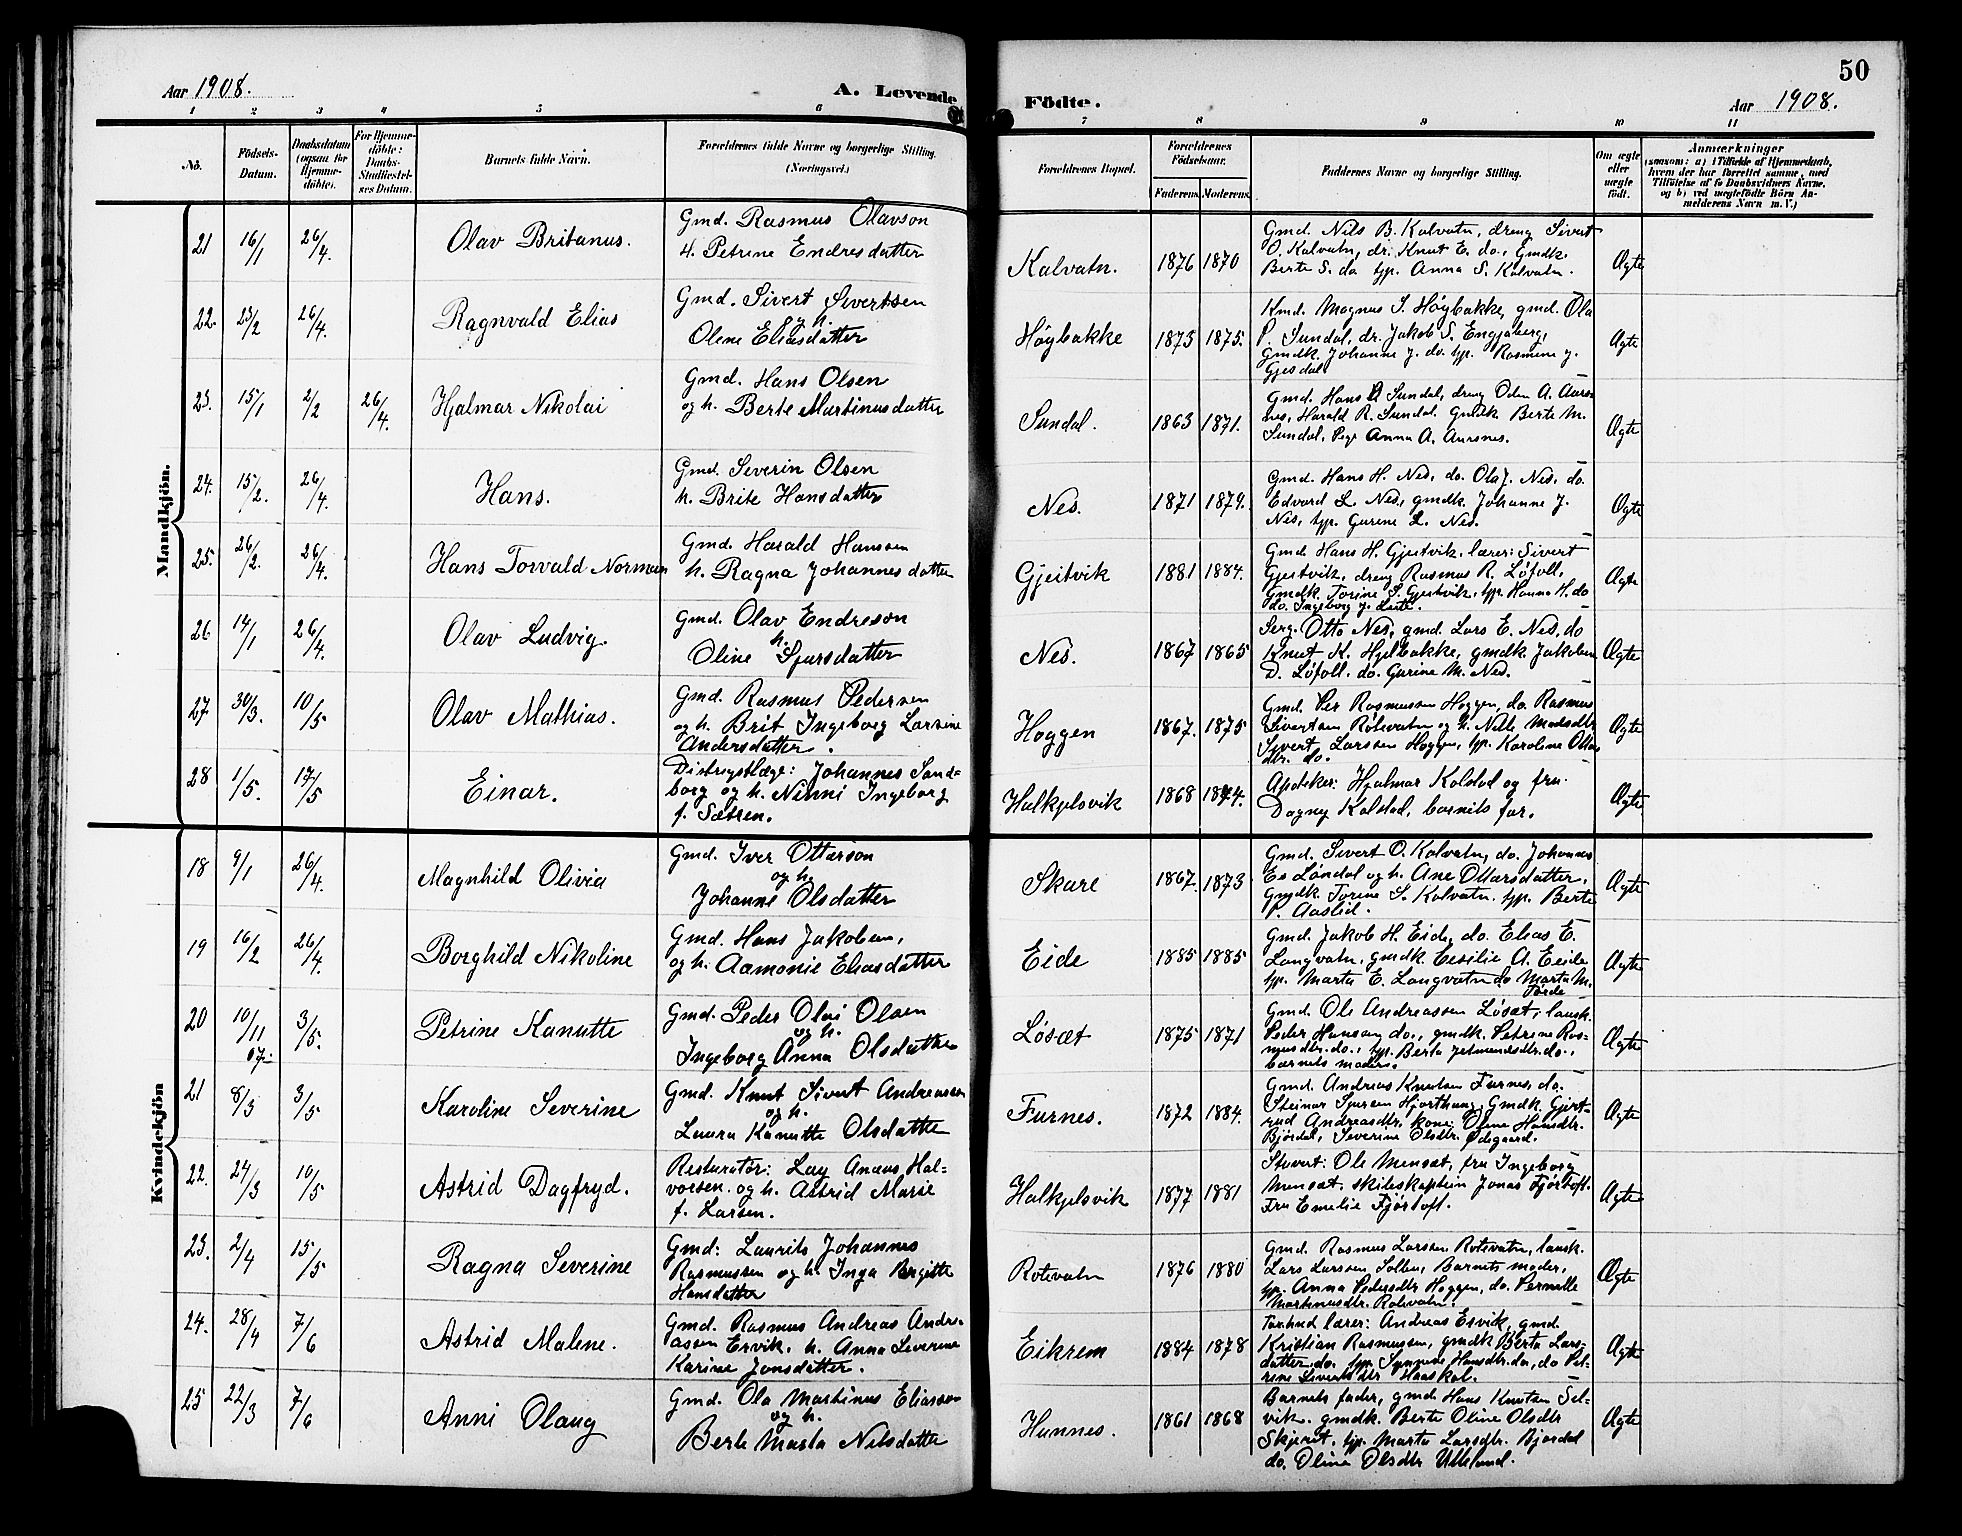 50
Aar 1908.
A. Levende Födte.
Aar 1908.
1 2 3 4 5 6 7 8 9 10 11
No.
Födsels-Datum.
Daabsdatum (ogsaa for Hjemme-döbte).
For Hjemme-döbte: Daabs-Stadfæstel-ses Datum.
Barnets fulde Navn.
Forældrenes fulde Navne og borgerlige Stilling. (Næringsvei.)
Forældrenes Bopæl.
Forældrenes Födselsaar.
Faderens. Moderens.
Faddernes Navne og borgerlige Stilling.
Om ægte eller uægte födt.
Anmærkninger
(saasom: a) i Tilfælde af Hjemmedaab, hvem der har forrettet samme, med Tilföielse af to Daabsvidners Navne, og b) ved uægtefödte Börn Anmelderens Navn m. V.)
Mandkjön.
21 16/1 26/4. Olav Britanus.
Gmd. Rasmus Olavson
h. Petrine Endresdatter
Kalvatn. 1876 1870
Gmd. Nils B. Kalvatn, dreng Sivert
O. Kalvatn, dr. Knut E. do., Gmdk.
Berte S. do typ. Anna S. Kalvatn.
Ægte
22. 23/2 26/4. Ragnvald Elias
Gmd. Sivert Sivertsen
og h.
Olene Eliasdatter
Höybakke 1873 1875.
Kmd. Magnus S. Höybakke, gmd. Ola
P. Sundal, dr. Jakob S. Engjaberg,
Gmdk. Johanne J. do. typ. Rasmine J.
Gjesdal
Ægte
23. 15/1 2/2 26/4. Hjalmar Nikolai
Gmd. Hans Olsen
og h. Berte Martinusdatter
Sundal. 1863 1871.
Gmd. Hans Sundal, dreng Oden A. Aurs
nes, Harald R. Sundal. Gmdk Berte M.
Sundal, Pige Anna A. Aursnes.
Ægte
24. 15/2. 26/4. Hans.
Gmd. Severin Olsen
h. Brite Hansdatter
Nes. 1871 1879.
Gmd. Hans H. Nes, do. Ola J. Nes, do.
Edvard L. Nes, gmdk. Johanne J.
Nes, typ. Gurine L. Nes.
Ægte
25. 26/2. 26/4. Hans Torvald Norman
Gmd. Harald Hanssen
h. Ragna Johannesdatter
Gjeitvik 1881 1884.
Gmd. Hans H. Gjeitvik. lærer: Sivert
Gjeitvik, dreng Rasmus R. Löfoll,
Gmdk. Torine S. Gjeitvik, typ. Hanna H. do
do. Ingeborg J.
Ægte
26 14/1 26/4. Olav Ludvig.
Gmd. Olav Endreson
h.
Oline Sjursdatter
Nes. 1867 1865
Serg. Otto Nes, gmd. Lars E. Nes, do
Knut K. Hjelbakke, gmdk. Jakobine
D. Löfoll. do. Gurine M. Nes.
Ægte
27 30/3. 10/5 Olav Mathias.
Gmd. Rasmus Pedersen
og h. Brit Ingeborg Larsine
Andersdatter.
Hoggen 1867. 1875
Gmd. Per Rasmussen Hoggen, do. Rasmus
Sivertsen Rötevatn og h. Nille Madsdtr
Sivert Larssen Hoggen, typ. Karoline Ottos
dtr. do.
Ægte
28 1/5. 17/5 Einar.
Distriktslæge: Johannes Sand=
borg og h. Ninni Ingeborg
f. Sætren.
Halkjelsvik 1868 1874.
Apoteker: Hjalmar Kolstad og fru
Dagny Kolstad, barnets far.
Ægte
Kvindekjön
18 9/1 26/4. Magnhild Olivia
Gmd. Iver Ottarson
og h.
Johanne Olsdatter
Skare 1867. 1873
Gmd. Sivert O. Kalvatn, do. Johannes
Es Löndal og h. Ane Ottarsdatter,
Gmdk Torine S. Kalvatn. typ. Berte
P. Aaslid.
Ægte
19 16/2 26/4. Borghild Nikoline
Gmd. Hans Jakobsen,
og h. Aamonie Eliasdatter
Eide 1885 1885
Gmd. Jakob H. Eide, do. Elias E.
Langvatn, gmdk Cesilie A. Eide
typ. Marta E. Langvatn do Marta M.
Förde
Ægte
20 10/11 07. 3/5. Petrine Kanutte
Gmd. Peder Olai Olsen
og h.
Ingeborg Anna Olsdatter
Lösæt 1875 1871
Gmd. Ole Andreassen Lösæt, lausk.
Peder Hansen do., gmdk. Petrine Ras-
musdtr. do., typ. Berta Jetmundsdtr. do.,
barnets moder.
Ægte
21 8/3 3/5 Karoline Severine
Gmd. Knut Sivert Andreassen
og h.
Laura Kanutte Olsdatter
Furnes. 1872 1884.
Gmd. Andreas Knutsen Furnes, do.
Steinar Sjursen Hjorthaug, Gmdk. Gjert-
rud Andreasdtr. kone: Oline Hansdtr.
Björdal, Severine Olsdtr. Ødegaard.
Ægte
22. 24/3 10/5 Astrid Dagfryd.
Resturatör: Lay Anæus Hal-
vorsen. og h. Astrid Marie
f. Larsen.
Halkjelsvik 1877 1881
Stuert: Ole Mensæt, fru Ingeborg
Mensæt. skibskaptein Jonas Fjörtoft.
Fru Emelie Fjörtoft.
Ægte
23. 2/4 15/5 Ragna Severine
Gmd: Laurits Johannes
Rasmussen og h. Inga Birgitte
Hansdatter
Rotevatn 1876 1880
Gmd. Rasmus Larssen Rotevatn, lausk.
Lars Larssen Solbu, Barnets moder,
typ. Anna Pedersdtr Hoggen, do. Pernille
Martinusdtr. Rotevatn.
Ægte
24. 28/4 7/6 Astrid Malene.
Gmd. Rasmus Andreas Andre-
assen Ervik. h. Anna Severine
Karine Jonsdatter.
Eikrem 1884 1878
lærer: Andreas Ervik, gmd.
Kristian Rasmussen, gmdk Berta Lars-
datter do. typ. Synnøve Hansdtr. do, do Pet-
rine Sivertsdtr Haaskol.
Ægte
25 22/3 7/6 Anni Olaug
Gmd. Ola Martinus Eliassen
og h.
Berte Marta Nilsdatter
Hunnes. 1861 1868
Barnets fader, gmd. Hans Knutsen Sel-
vik. gmdk. Berte Oline Olsdtr
Skjeret, typ. Marta Larsdtr. Björdal
do. Oline Olsdtr Utelund.
Ægte